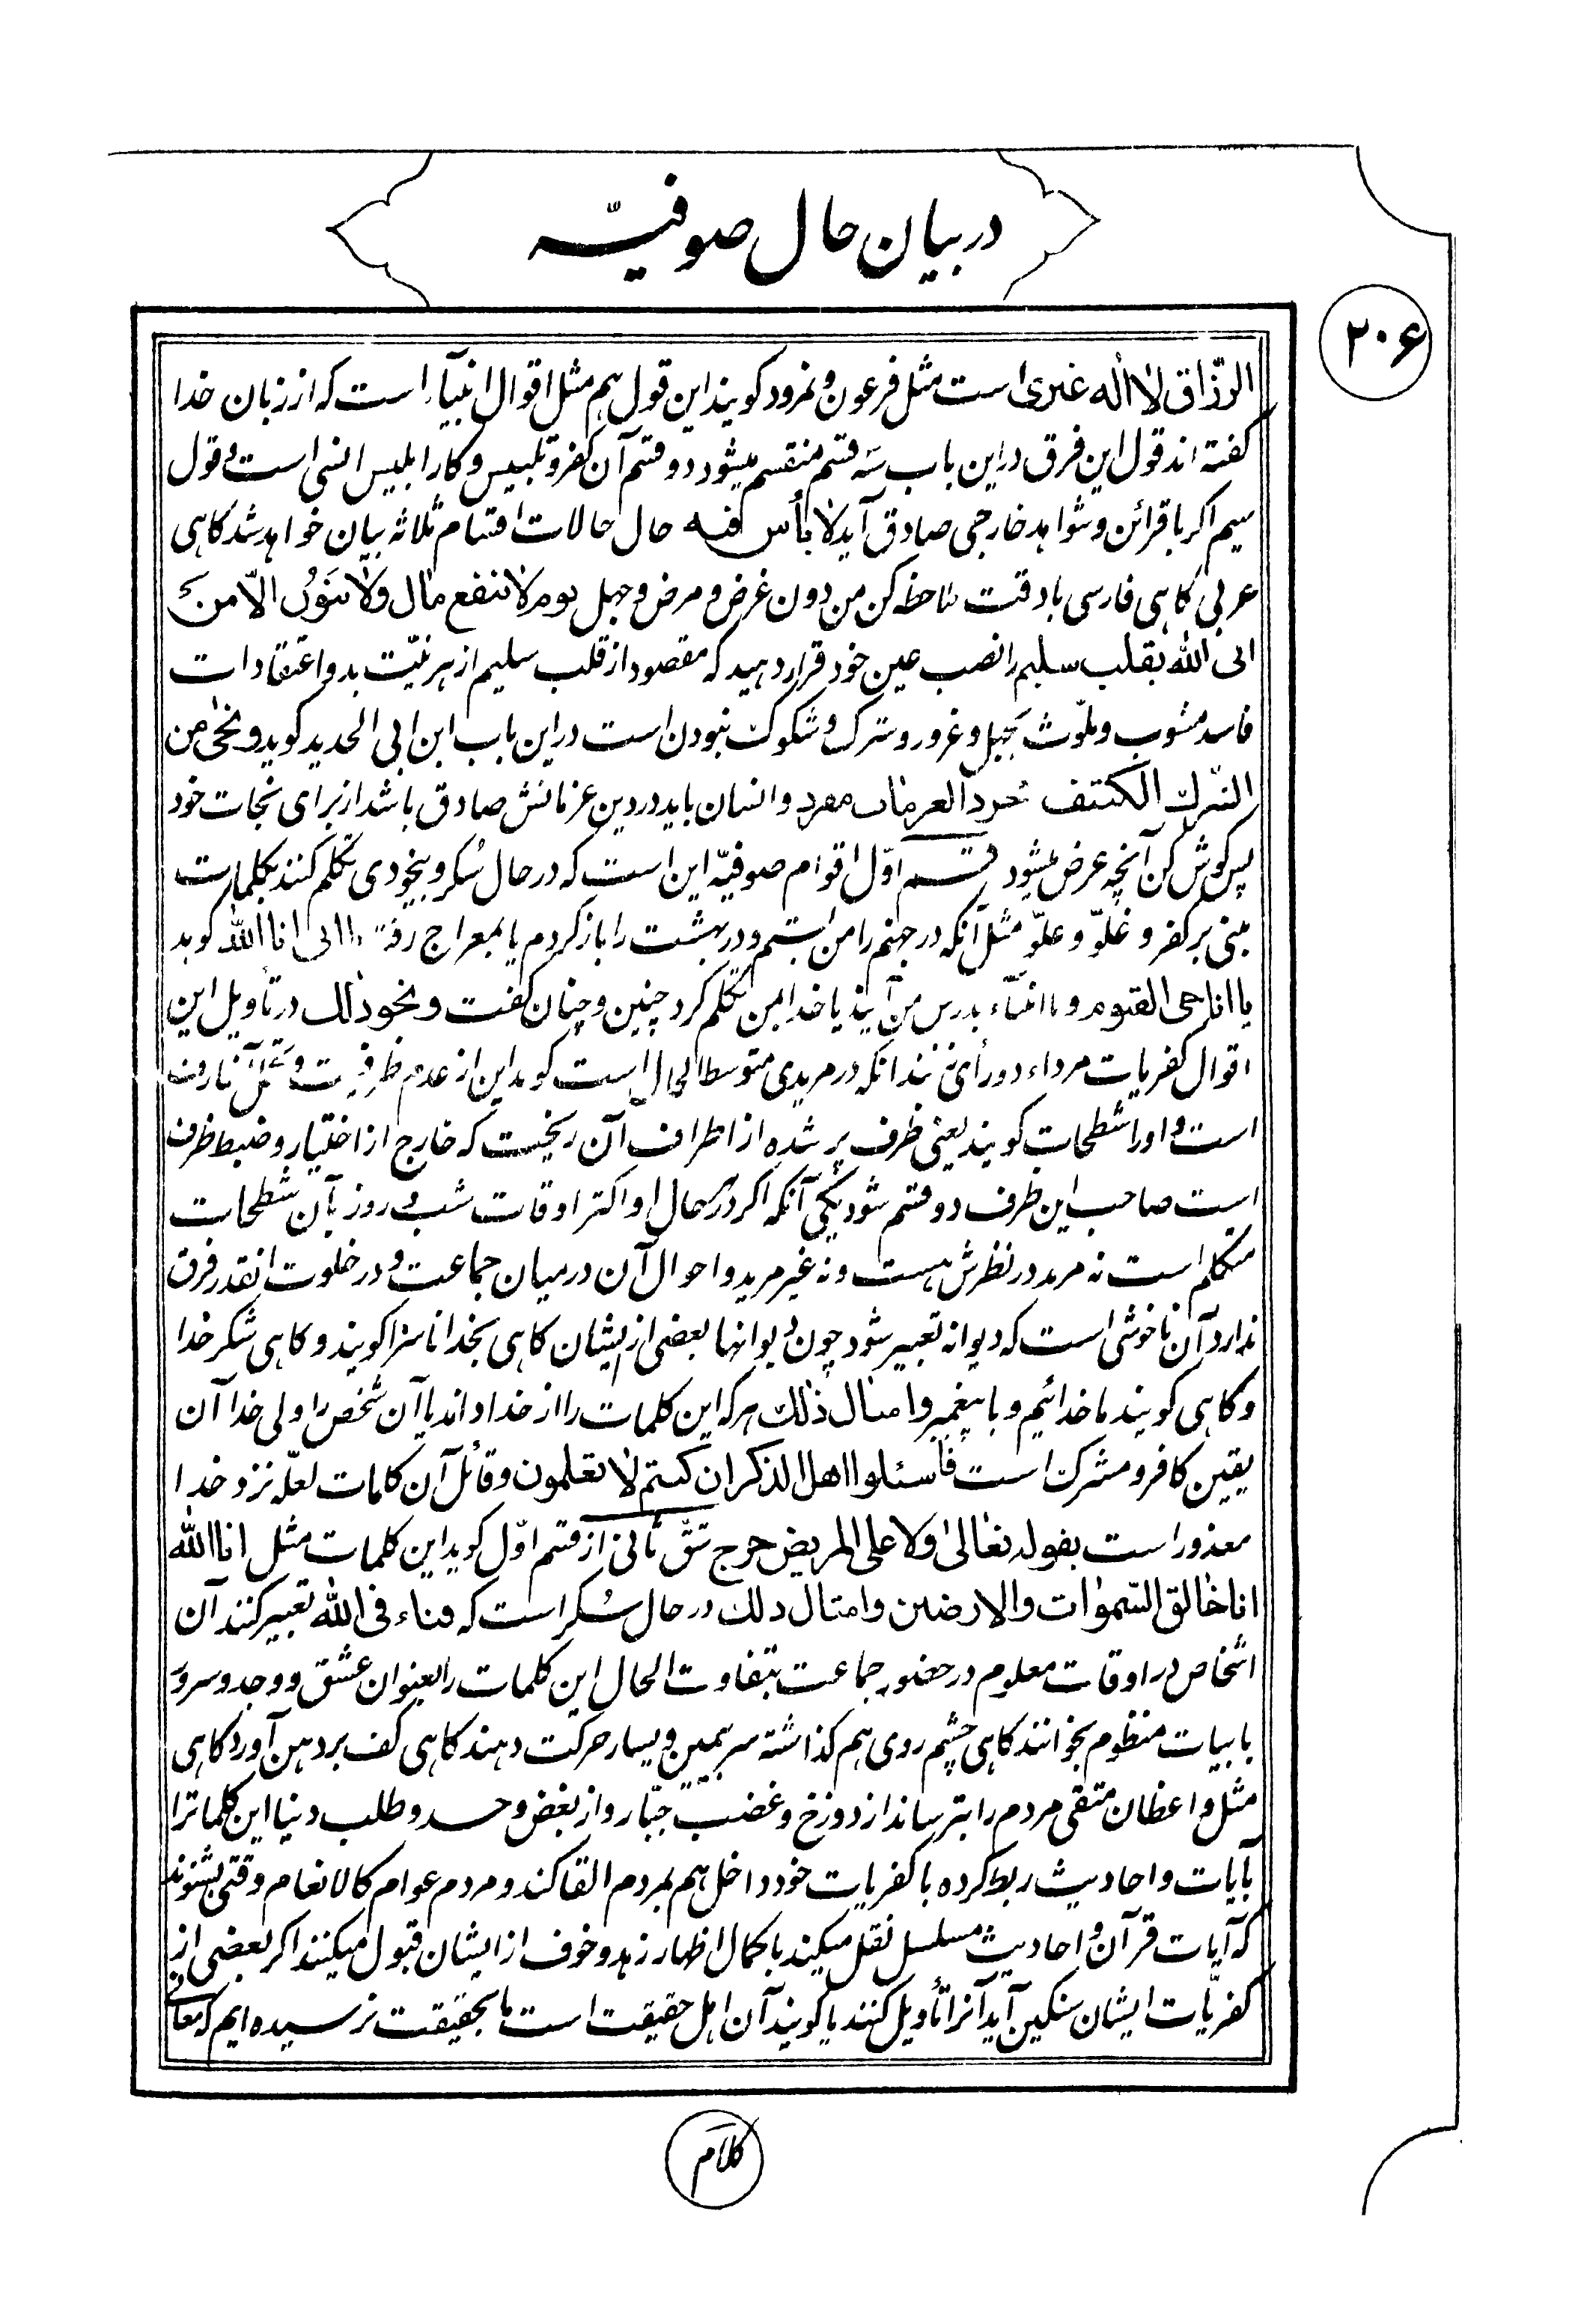 در بیان حال صوفیّه
۲۰۶
الرزّاق لا اله غیری است مثل فرعون و نمرود کویند این قول هم مثل اقوال انبیآء است که از زبان خدا
کفته اند قول این فرق در این باب سَه قسم منقسم میشود دو قسم آن کفر و تلبیس و کار ابلیس انسی است و قول
سیم اکر با قرائن و شواهد خارجی صادق آید لا بأس فیه حال حالات اقسام ثلاثه بیان خواهد شد کاهی
عربی کاهی فارسی با دقت ملاحظه کن من دون غرض و مرض و جهل یوم لا ینفع مال ولا بنون الّا من
اتی الله بقلب سلیم را نصب عین خود قرار دهید که مقصود از قلب سلیم از هر نیّت بد و اعتقادات
فاسد مشوب و ملوّث بجهل و غرور و شرک و شکوک نبودن است در این باب ابن ابی الحدید کوید و نحن من
الشرک و انسان باید در دین عزمانش صادق باشد از برای نجات خود
پس کوش کن آنچه عرض میشود قسم اوّل اقوام صوفیّه این است که در حال سُکر و بیخودی تکلم کنند بکلمات
مبنی بر کفر و غلوّ و علوّ مثل آنکه در جهنم را من بستم و در بهشت را باز کردم یا بمعراج رفتم انا الله کوید
یا انا حی القیوم و یا انبیآء بدرس من آیند یا خدا بمن تکلم کرد چنین و چنان کفت و نحو ذلک در تأویل این
اقوال کفریات مرداء دو رأی زنند آنکه در مریدی متوسط الحال است کوید این از عدم ظرفیت
است و او را شطحات کویند یعنی ظرف پر شده از اطراف آن ریخت که خارج از اختیار و ضبط ظرف
است صاحب این ظرف دو قسم شود یکی آنکه اکر در هر حال او اکثر اوقات شب و روز بآن شطحات
متکلم است نه مرید در نظرش هست و نه غیر مرید و احوال آن در میان جماعت و در خلوت آنقدر فرق
ندارد آن ناخوشی است که دیوانه تعبیر شود چون دیوانها بعضی از ایشان کاهی بخدا ناسزا کویند و کاهی شکر خدا
و کاهی کویند ما خدائیم و یا پیغمبر و امثال ذلک هر که این کلمات را از خدا داند یا آن شخص را ولی خدا آن
یقین کافر و مشرک است فاسئلوا اهل الذکر ان کنتم لا تعلمون و قائل آن کلمات لعلّه نزد خدا
معذور است بقوله تعالی ولا علی المریض حرج شقّ ثانی از قسم اوّل کوید این کلمات مثل انا الله
انا خالق السّموات والارضین و امثال ذلک در حال سُکر است که فناء فی الله تعبیر کنند آن
اشخاص در اوقات معلوم در حضور جماعت بتفاوت الحال این کلمات را بعنوان عشق و وجد و سرور
بابیات منظوم بخوانند کاهی چشم روی هم کذاشته سر بیمین و یسار حرکت دهند کاهی کف بر دهن آورد کاهی
مثل واعظان متقی مردم را بترساند از دوزخ و غضب جبّار و از بغض و حسد و طلب دنیا این کلماترا
بآیات و احادیث ربط کرده با کفریات خود داخل هم بمردم القا کند و مردم عوام کالانعام وقتی بشنوند
که آیات قرآن و احادیث مسلسل نقل میکند با کمال اظهار زهد و خوف از ایشان قبول میکنند اکر بعضی از
کفریّات ایشان سنکین آید آنرا تأویل کنند یا کویند آن اهل حقیقت است ما بحقیقت نرسیده ایم که معانی
کلام